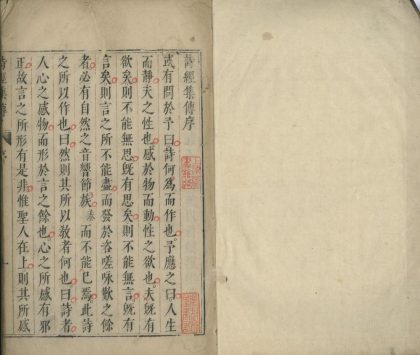 詩經集傳序
或有問於予曰詩何為而作也予應之曰人生
而靜天之性也感於物而動性之欲也夫既有
欲矣則不能無思既有思矣則不能無言既有
言矣則言之所不能盡而發於咨嗟咏歎之餘
者必有自然之音響節族奏而不能已焉此詩
之所以作也曰然則其所以教者何也曰詩者
人心之感物而形於言之餘也心之所感有邪
正故言之所形有是非惟聖人在上則其所感
詩經集傳